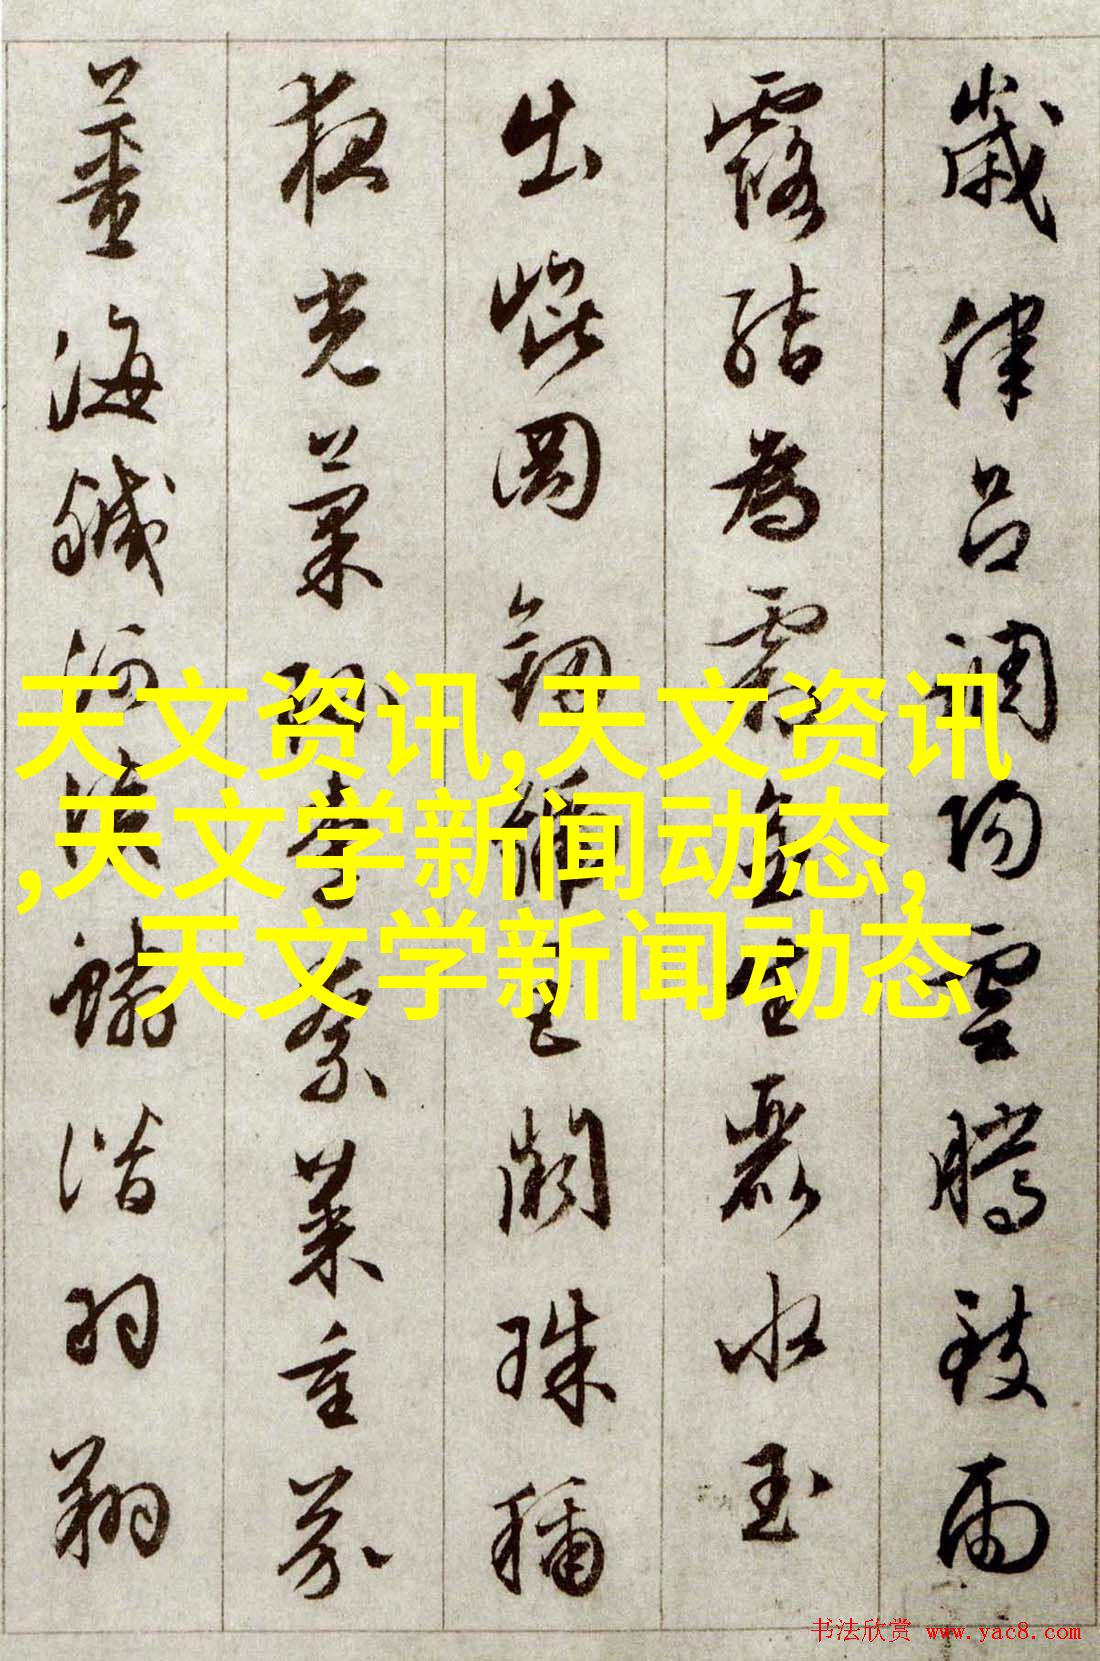 歲律呂調陽雲騰致雨
露結為霜金生麗水玉
出崐岡劒號巨闕珠稱
夜光菓珍李柰菜重芥
薑海鹹河淡鱗潛羽翔
天文资讯,天文资讯
,天文学新闻动态,
天文学新闻动态
书法欣赏 www.yac8.com